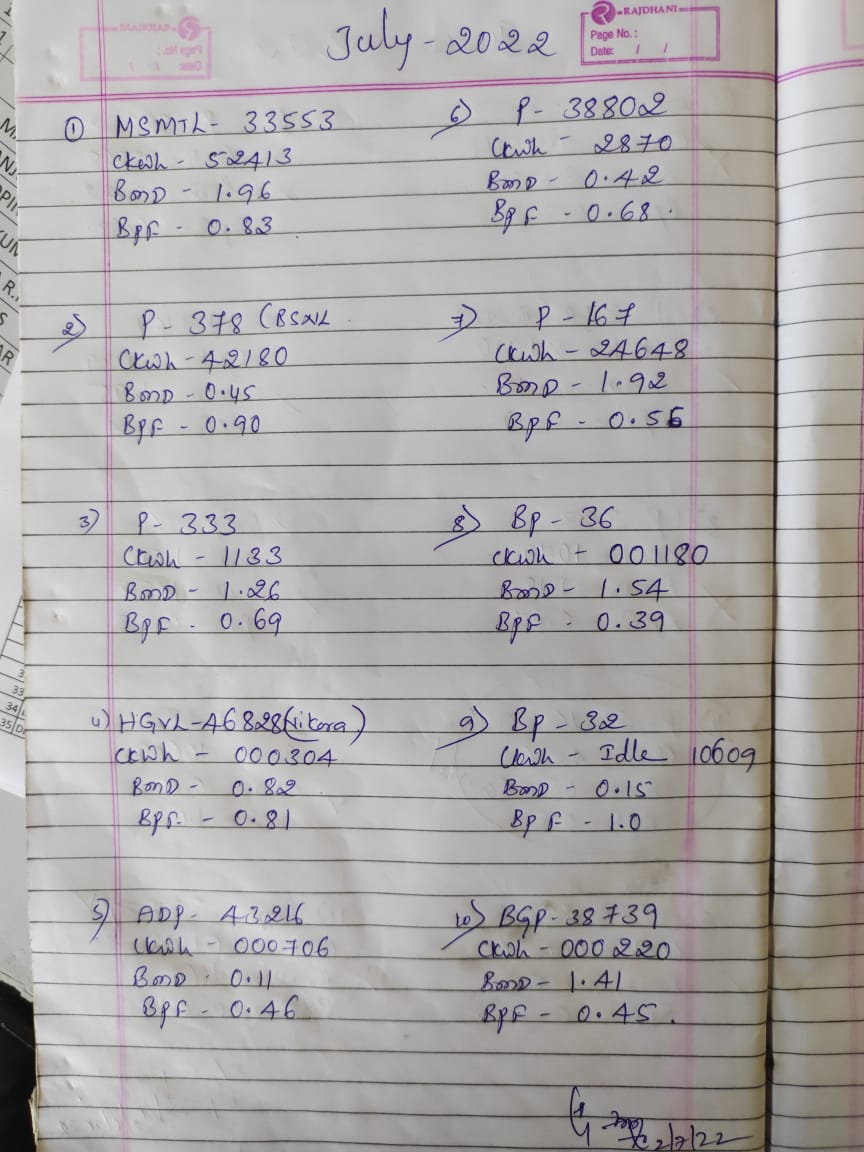 July - 2022
RAJDHANI
Page No. :
Date: / /
① MSMTL- 33553
CKwh - 52413
BmD - 1.96
BPF - 0.83
2) P- 378 (BSNL
CKwh - 42180
BmD - 0.45
BPF - 0.90
3) P- 333
CKwh - 1133
BmD - 1.26
BPF - 0.69
4) HGVL-46828(Nikora)
CKWh - 000304
BmD - 0.82
BPF. - 0.81
5) ADP- 43216
CKwh - 000706
BmD - 0.11
BPF - 0.46
6) P- 38802
CKwh - 2870
BmD - 0.42
BPF - 0.68.
7) P - 167
CKwh - 24648
BmD - 1.92
BPF - 0.56
8) BP - 36
CKwh - 001180
BmD - 1.54
BPF - 0.39
9) BP - 32
CKwh - Idle 10609
BmD - 0.15
BPF - 1.0
10) BGP-38739
CKwh - 000220
BmD - 1.41
BPF - 0.45.
2/7/22